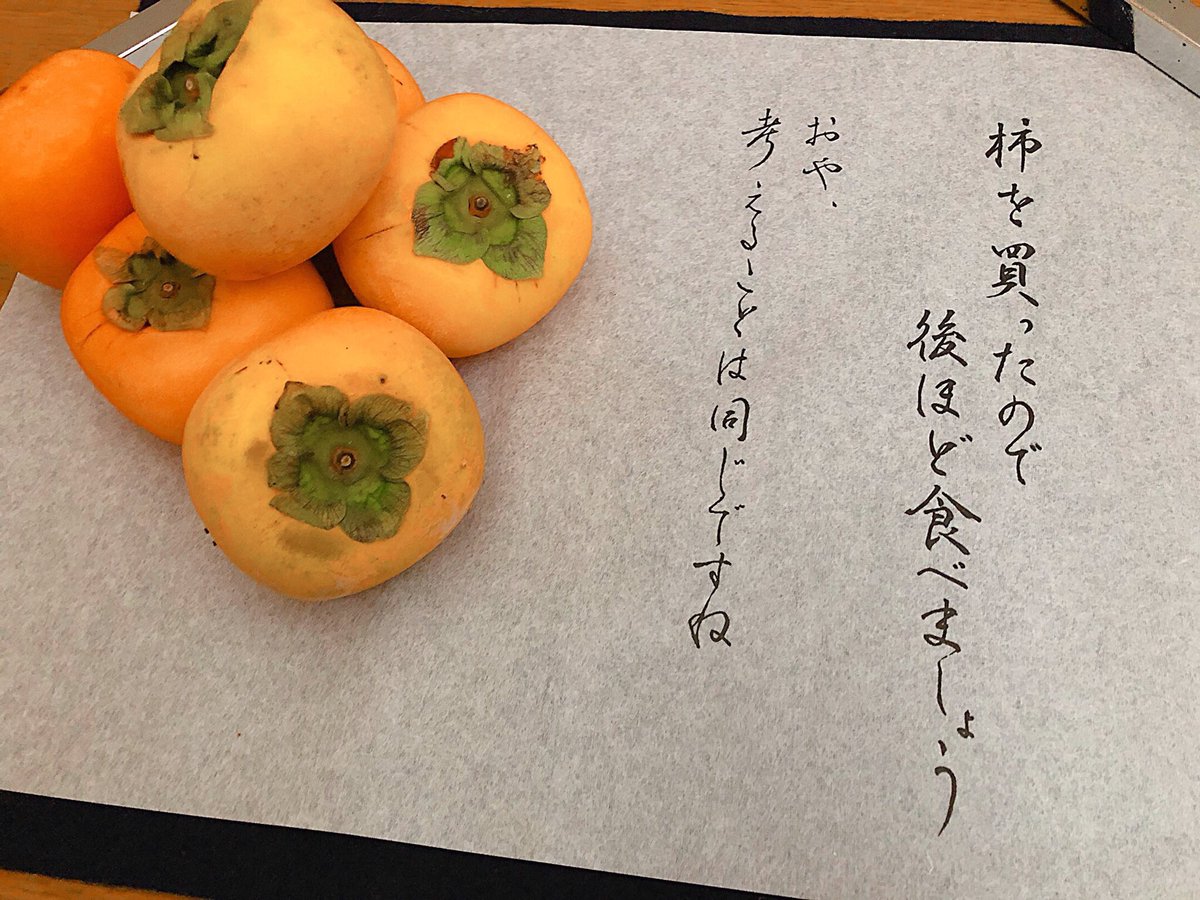 柿を買ったので
後ほど食べましょう
おや、
考えることは同じですね